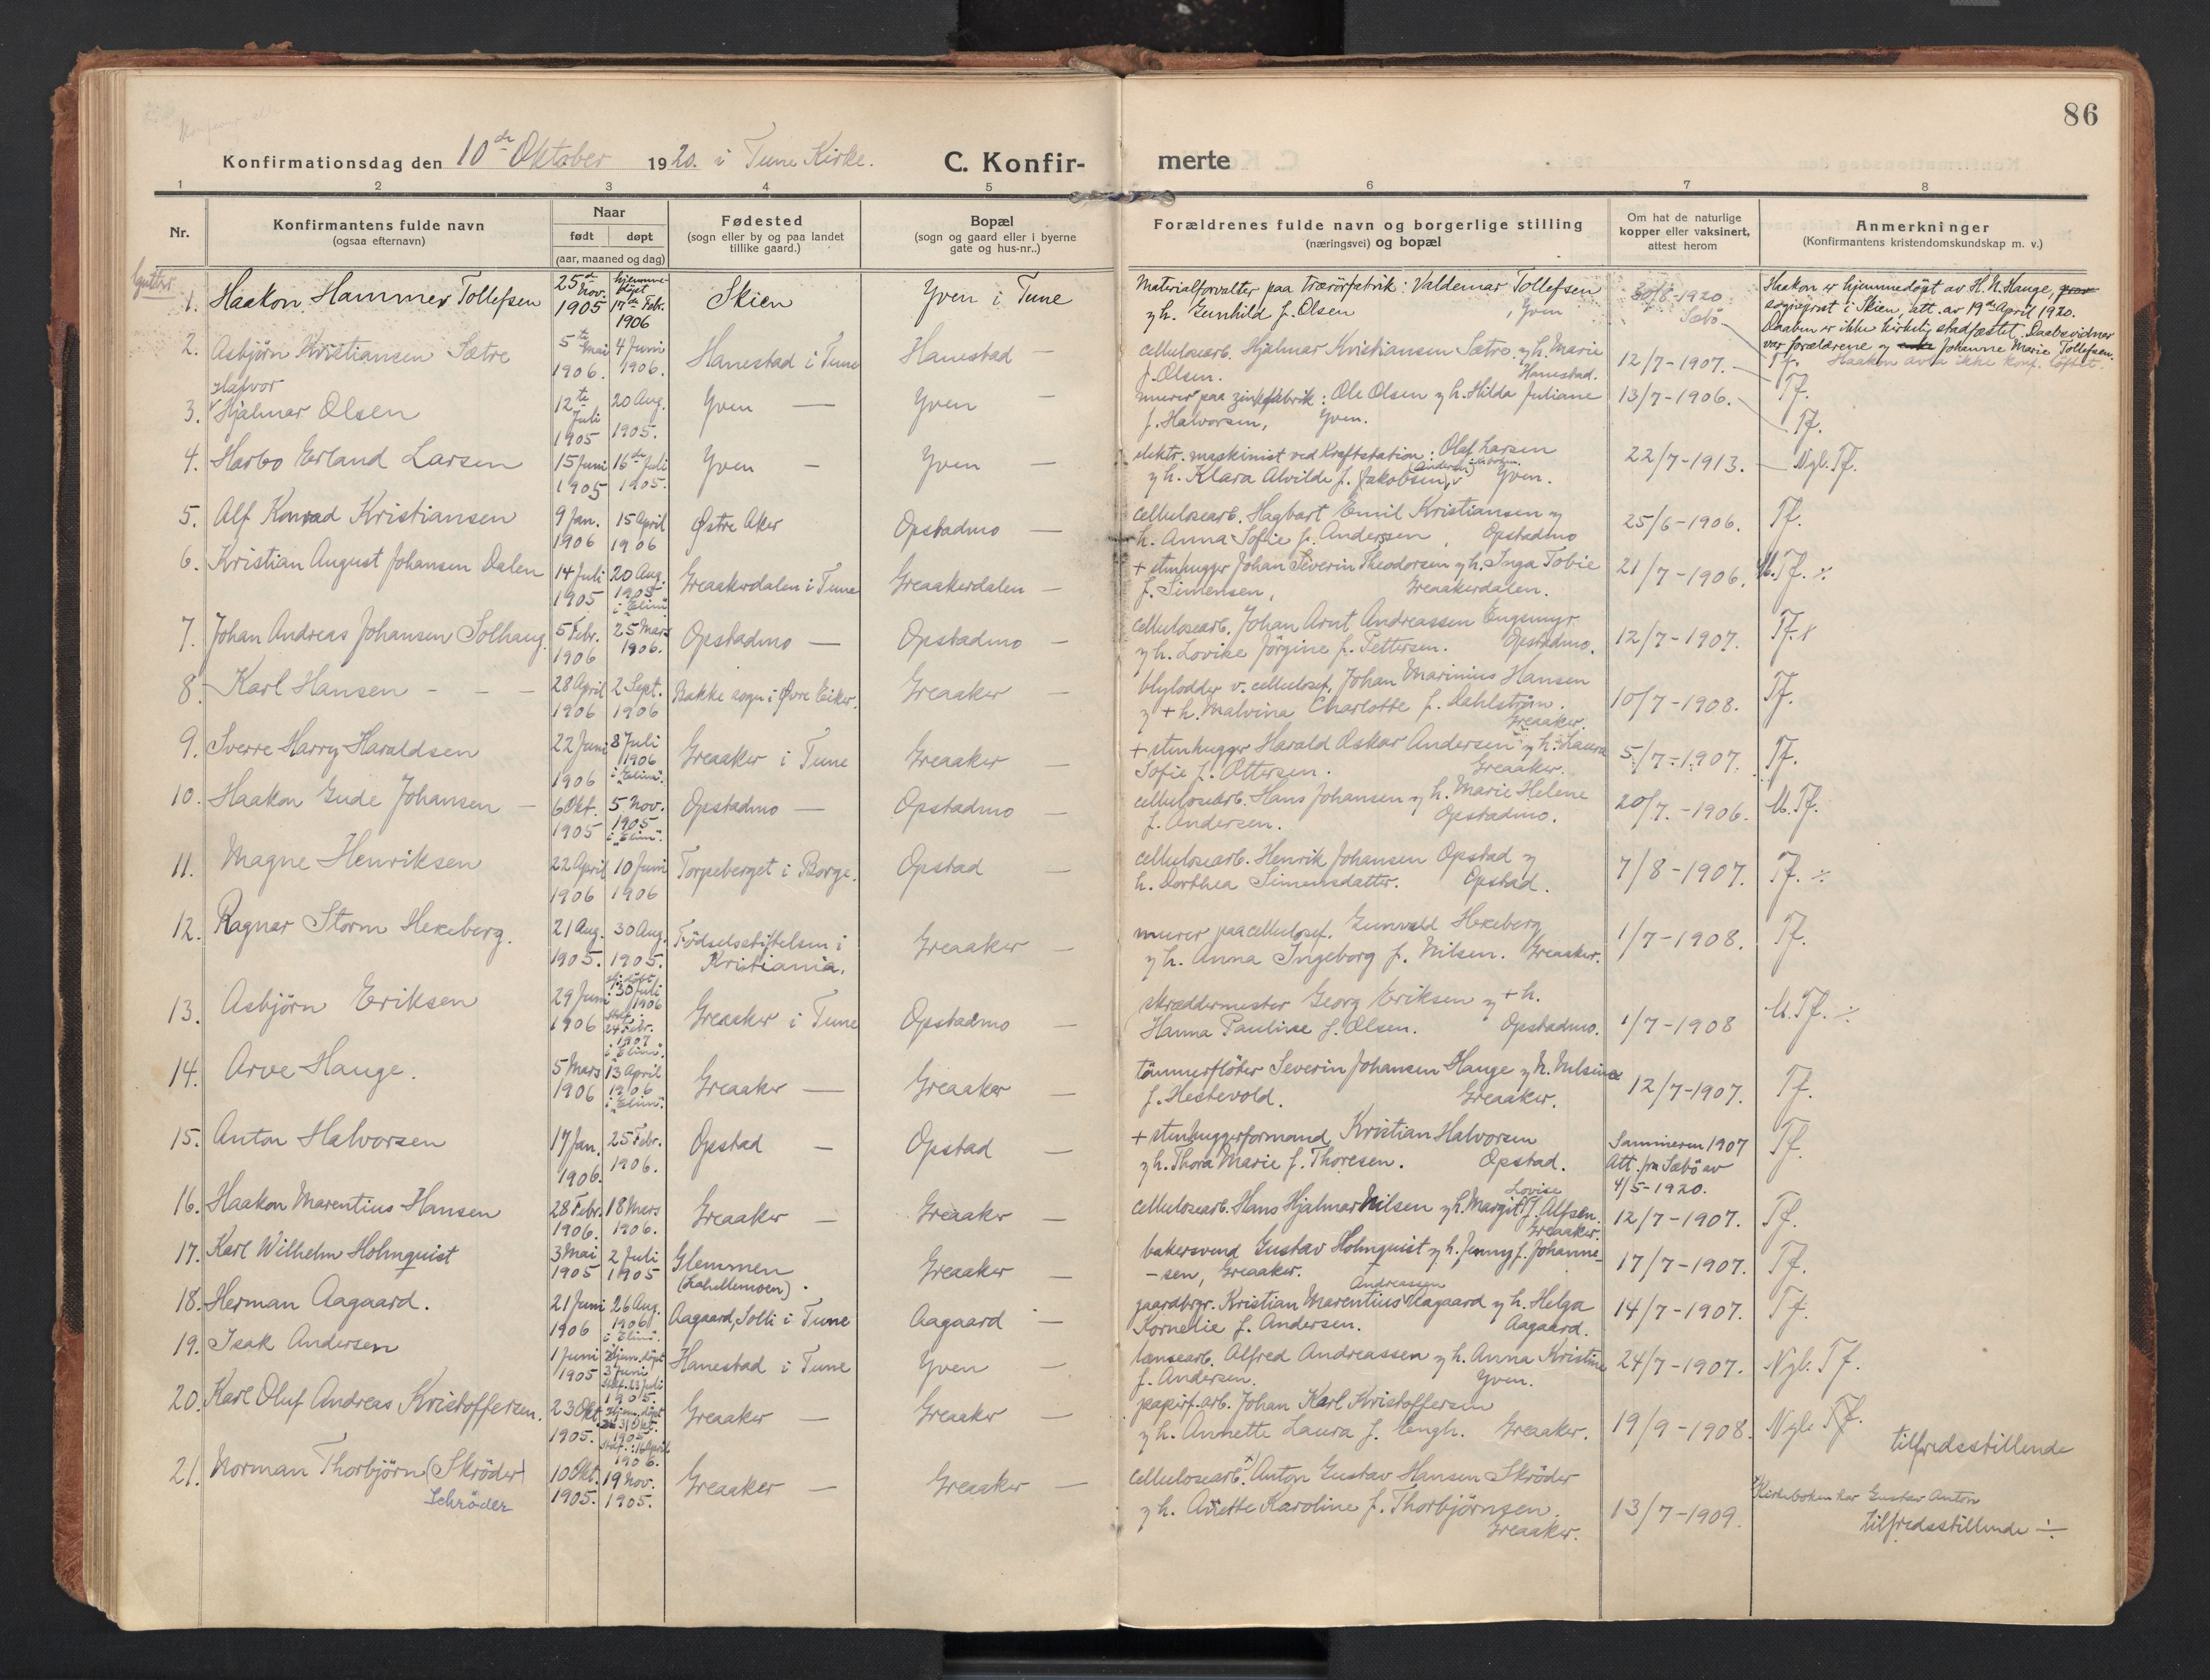 86
Konfirmationsdag den 10de Oktober 1920. i Tune Kirke.
C. Konfir-
merte
1 2 3 4 5 6 7 8
Nr.
Konfirmantens fulde navn
(ogsaa efternavn)
Naar
født døpt
(aar, maaned og dag)
Fødested
(sogn eller by og paa landet
tillike gaard.)
Bopæl
(sogn og gaard eller i byerne
gate og hus-nr..)
Forældrenes fulde navn og borgerlige stilling
(næringsvei) og bopæl
Om hat de naturlige
kopper eller vaksinert,
attest herom
Anmerkninger
(Konfirmantens kristendomskundskap m. v.)
Gutter
1. Haakon Hammer Tollefsen
25de Nov. 1905
hjemmedöpt 17de Febr. 1906
Skien
Yven i Tune
Materialforvalter paa trærörfabrik: Valdemar Tollefsen
og h. Gunhild f. Olsen, Yven
30/8-1920
Sæbö
Haakon er hjemmedöpt av H. N. Hauge,
sogneprest i Skien, att. av 19de April 1920.
Daaben er ikke kirkelig stadfæstet. Daabsvidner
var forældrene og Johanne Marie Tollefsen.
Tf. Haakon avla ikke konf. löftet.
2. Asbjörn Kristiansen Sætre
5te Mai 1906.
4 Juni 1906.
Hanestad i Tune
Hanestad —
cellulosearb. Hjalmar Kristiansen Sætre og h. Marie
f. Olsen. Hanestad.
12/7-1907.
Tf.
Halvor
3. Hjalmar Olsen
12te Juli 1905
20 Aug. 1905.
Yven —
Yven —
murer paa zinkfabrik: Ole Olsen og h. Hilda Juliane
f. Halvorsen, Yven.
13/7-1906.
Tf.
4. Harbo Erland Larsen
15 Juni 1905
16de Juli 1905.
Yven —
Yven —
elektr. maskinist ved Kraftstation: Olaf Larsen
og h. Klara Alvilde f. Jakobsen, Yven.
22/7-1913.
Nyb. Tf.
5. Alf Konrad Kristiansen
9 Jan. 1906
15 April 1906
Østre Aker
Opstadmo —
cellulosearb. Hagbart Emil Kristiansen og
h. Anna Sofie f. Andersen, Opstadmo
25/6-1906.
Tf.
6. Kristian August Johansen Dalen
14 Juli 1905
20 Aug. 1905 i "Elim"
Greaakerdalen i Tune
Greaakerdalen —
+ stenhugger Johan Severin Theodorsen og h. Inga Tobie
f. Simensen, Greaakerdalen.
21/7-1906.
M. Tf. ÷
7. Johan Andreas Johansen Solhaug.
5 Febr. 1906
25 Mars 1906.
Opstadmo —
Opstadmo —
cellulosearb. Johan Arnt Andreassen Engsmyr
og h. Lovise Jörgine f. Pettersen. Opstadmo.
12/7-1907.
Tf. x
8. Karl Hansen - - -
28 April 1906
2 Sept. 1906
Bakke sogn i Øvre Eiker.
Greaaker —
blylodder v. cellulosef. Johan Marinius Hansen
og + h. Malvina Charlotte f. Dahlström.
Greaaker.
10/7-1908.
Tf.
9. Sverre Harry Haraldsen
22 Juni 1906
8 Juli 1906 i "Elim".
Greaaker i Tune
Greaaker —
+ stenhugger Harald Oskar Andersen og h. Laura
Sofie f. Ottersen. Greaaker.
5/7-1907.
Tf.
10. Haakon Gude Johansen —
6 Okt. 1905
5 Nov. 1905 i "Elim".
Opstadmo —
Opstadmo —
cellulosearb. Hans Johansen og h. Marie Helene
f. Andersen. Opstadmo.
20/7.-1906.
M. Tf.
11. Magne Henriksen
22 April 1906
10 Juni 1906
Torpeberget i Borge.
Opstad —
cellulosearb. Henrik Johansen Opstad og
h. Dorthea Simensdatter. Opstad.
7/8-1907.
Tf. ÷
12. Ragnar Storm Hekeberg.
21 Aug. 1905.
30 Aug. 1905.
Födselsstiftelsen i
Kristiania.
Greaaker —
murer paa cellulosef. Gunvald Hekeberg
og h. Anna Ingeborg f. Nilsen. Greaaker.
1/7-1908.
Tf.
13. Asbjörn Eriksen
29 Juni 1906
hj. döbt 30 Juli 1906
Stadf. 24 Febr. 1907 i "Elim".
Greaaker i Tune
Opstadmo —
skræddermester Georg Eriksen og + h.
Hanna Pauline f. Olsen. Opstadmo.
1/7-1908
M. Tf. ÷
14. Arve Hauge.
5 Mars 1906
13 April 1906 i "Elim".
Greaaker —
Greaaker —
tömmerflöter Severin Johansen Hauge og h. Nilsine
f. Hestevold. Greaaker.
12/7-1907.
Tf.
15. Anton Halvorsen
17 Jan. 1906.
25 Febr. 1906.
Opstad —
Opstad —
+ stenhuggerformand Kristian Halvorsen
og h. Thora Marie f. Thoresen. Opstad.
Sommeren 1907
Att. fra Sæbö av
4/5-1920.
Tf.
16. Haakon Marentius Hansen
28 Febr. 1906.
18 Mars 1906.
Greaaker —
Greaaker —
Lovise
cellulosearb. Hans Hjalmar Nilsen og h. Margit f. Alfsen.
Greaaker.
12/7-1907.
Tf.
17. Karl Wilhelm Holmquist
3 Mai 1905
2 Juli 1905
Glemmen
(Lahellemoen).
Greaaker —
bakersvend Gustav Holmquist og h. Jenny f. Johanne-
-sen, Greaaker.
17/7-1907.
Tf.
18. Herman Aagaard.
21 Juni 1906
26 Aug. 1906 i "Elim".
Aagaard, Solli i Tune
Aagaard —
Andreassen
gaardbrgr. Kristian Marentius Aagaard og h. Helga
Kornelie f. Andersen. Aagaard.
14/7-1907.
Tf.
19. Isak Andersen
1 Juni 1905
Hjem. döpt 3 Juni
Stadf. 23 Juli 1905.
Hanestad i Tune
Yven —
lænsearb. Alfred Andreassen og h. Anna Kristine
f. Andersen. Yven.
24/7-1907.
Nyb. Tf.
20. Karl Oluf Andreas Kristoffersen.
23 Okt. 1905.
Hjem. döpt 31 Okt. 1905
Stadf.: 16 April 1906.
Greaaker —
Greaaker —
papirf. arb. Johan Karl Kristoffersen
og h. Annette Laura f. Engh. Greaaker.
19/9-1908.
Nyb. Tf.
tilfredsstillende
21. Norman Thorbjörn (Skröder)
Schröder
10 Okt. 1905.
19 Nov. 1905.
Greaaker —
Greaaker —
cellulosearb. x) Anton Gustav Hansen Skröder
og h. Anette Karoline f. Thorbjörnsen.
Greaaker.
13/7-1909.
x Kirkeboken har Gustav Anton
tilfredsstillende ÷